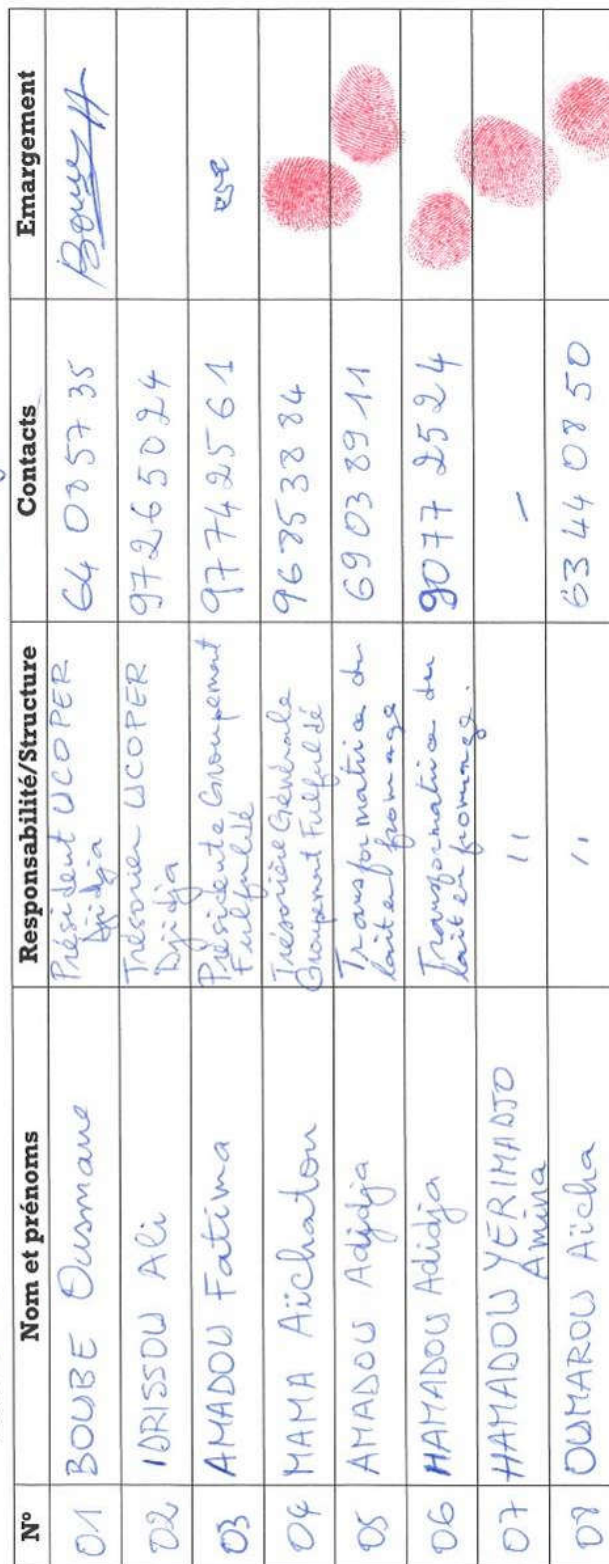 N° Nom et prénoms Responsabilité/Structure Contacts Emargement
01 BOUBE Ousmane Président UCOPER Djidja 64 08 57 35
02 IDRISSOU Ali Trésorier UCOPER Djidja 97 26 50 24
03 AMADOU Fatima Présidente Groupement Fulfuldé 97 74 25 61
04 MAMA Aïchatou Trésorière Générale Groupement Fulfuldé 96 85 38 84
05 AMADOU Adjidja Transformatrice du lait en fromage 69 03 89 11
06 HAMADOU Adidja Transformatrice du lait en fromage. 90 77 25 24
07 HAMADOU YERIMADJO Amina " -
08 OUMAROU Aïcha " 63 44 08 50